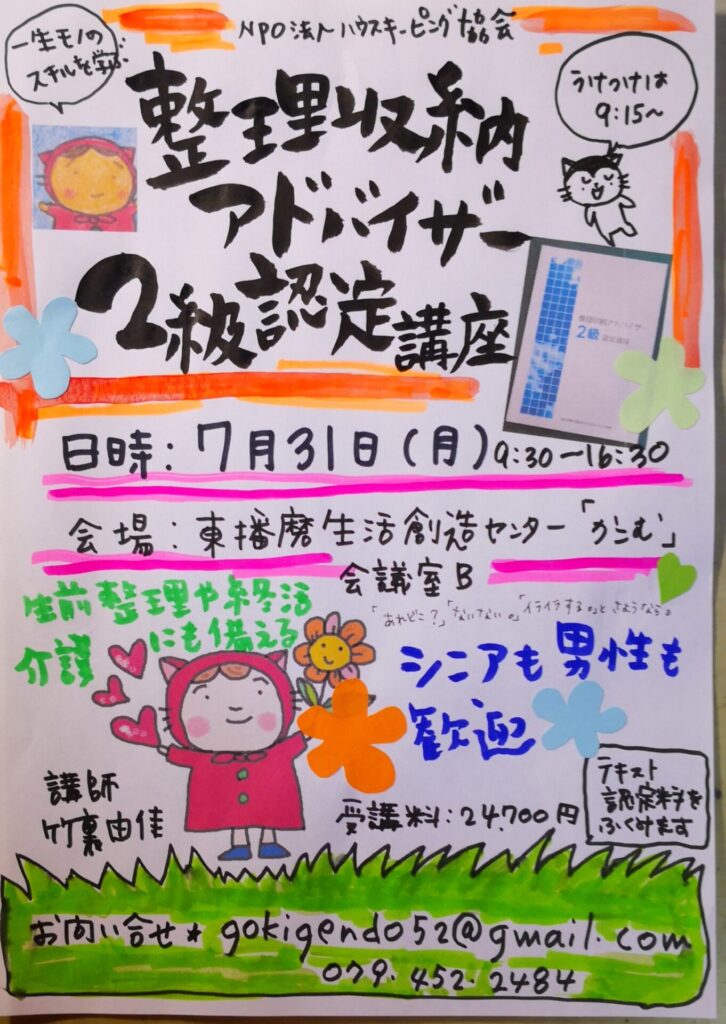 NPO法人ハウスキーピング協会
一生モノの
スキルを学ぶ
うけつけは
9:15〜
整理収納
アドバイザー
2級認定講座
整理収納アドバイザー
2級 認定講座
日時：7月31日(月)9:30−16:30
会場：東播磨生活創造センター「かこむ」
会議室B
「あれどこ？」「ないない。」「イライラする。」とさようなら。
生前整理や終活
介護にも備える
シニアも男性も
歓迎
講師
竹裏由佳
受講料：24,700円
テキスト
認定料を
ふくみます
お問い合せ * gokigendo52@gmail.com
079.452.2484